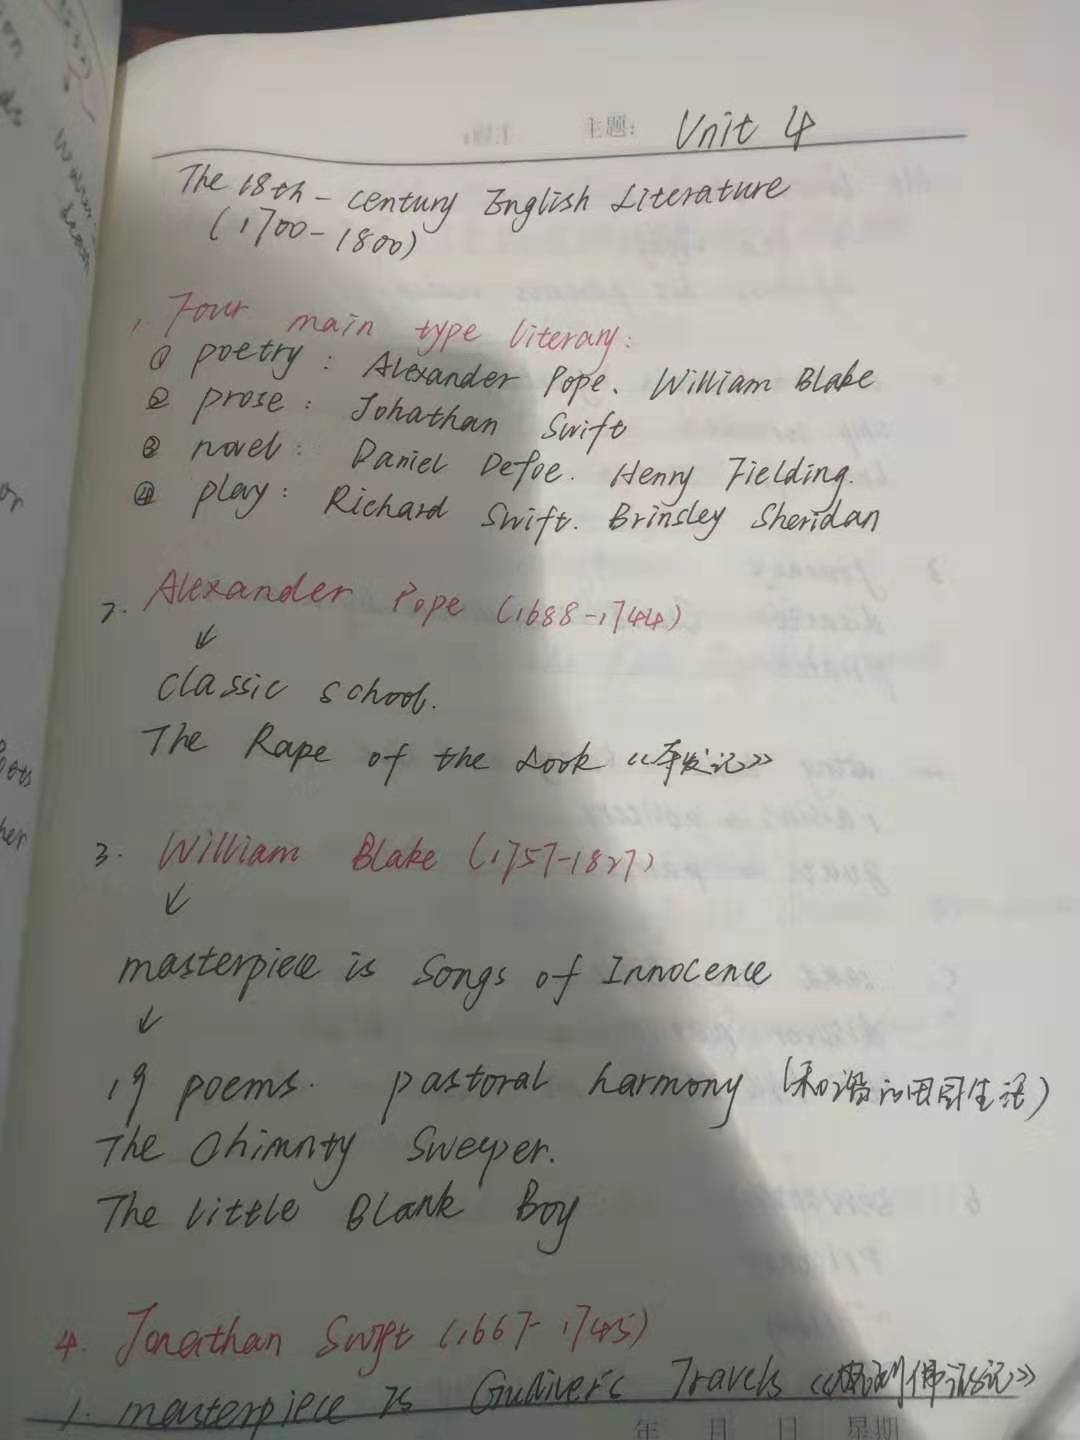 主题: Unit 4
The 18th-century English Literature
(1700-1800)
1. Four main type literary:
① poetry: Alexander Pope、William Blake
② prose: Johathan Swift
③ novel: Daniel Defoe. Henry Fielding.
④ play: Richard Swift. Brinsley Sheridan
2. Alexander Pope (1688-1744)
↓
classic school.
The Rape of the Look 《夺发记》
3. William Blake (1757-1827)
↓
masterpiece is Songs of Innocence
↓
19 poems. pastoral harmony (和谐的田园生活)
The Chimnty Sweeper.
The little Blank Boy
4. Jonathan Swift (1667-1745)
1. masterpiece is Gulliver's Travels 《格列佛游记》
年 月 日 星期